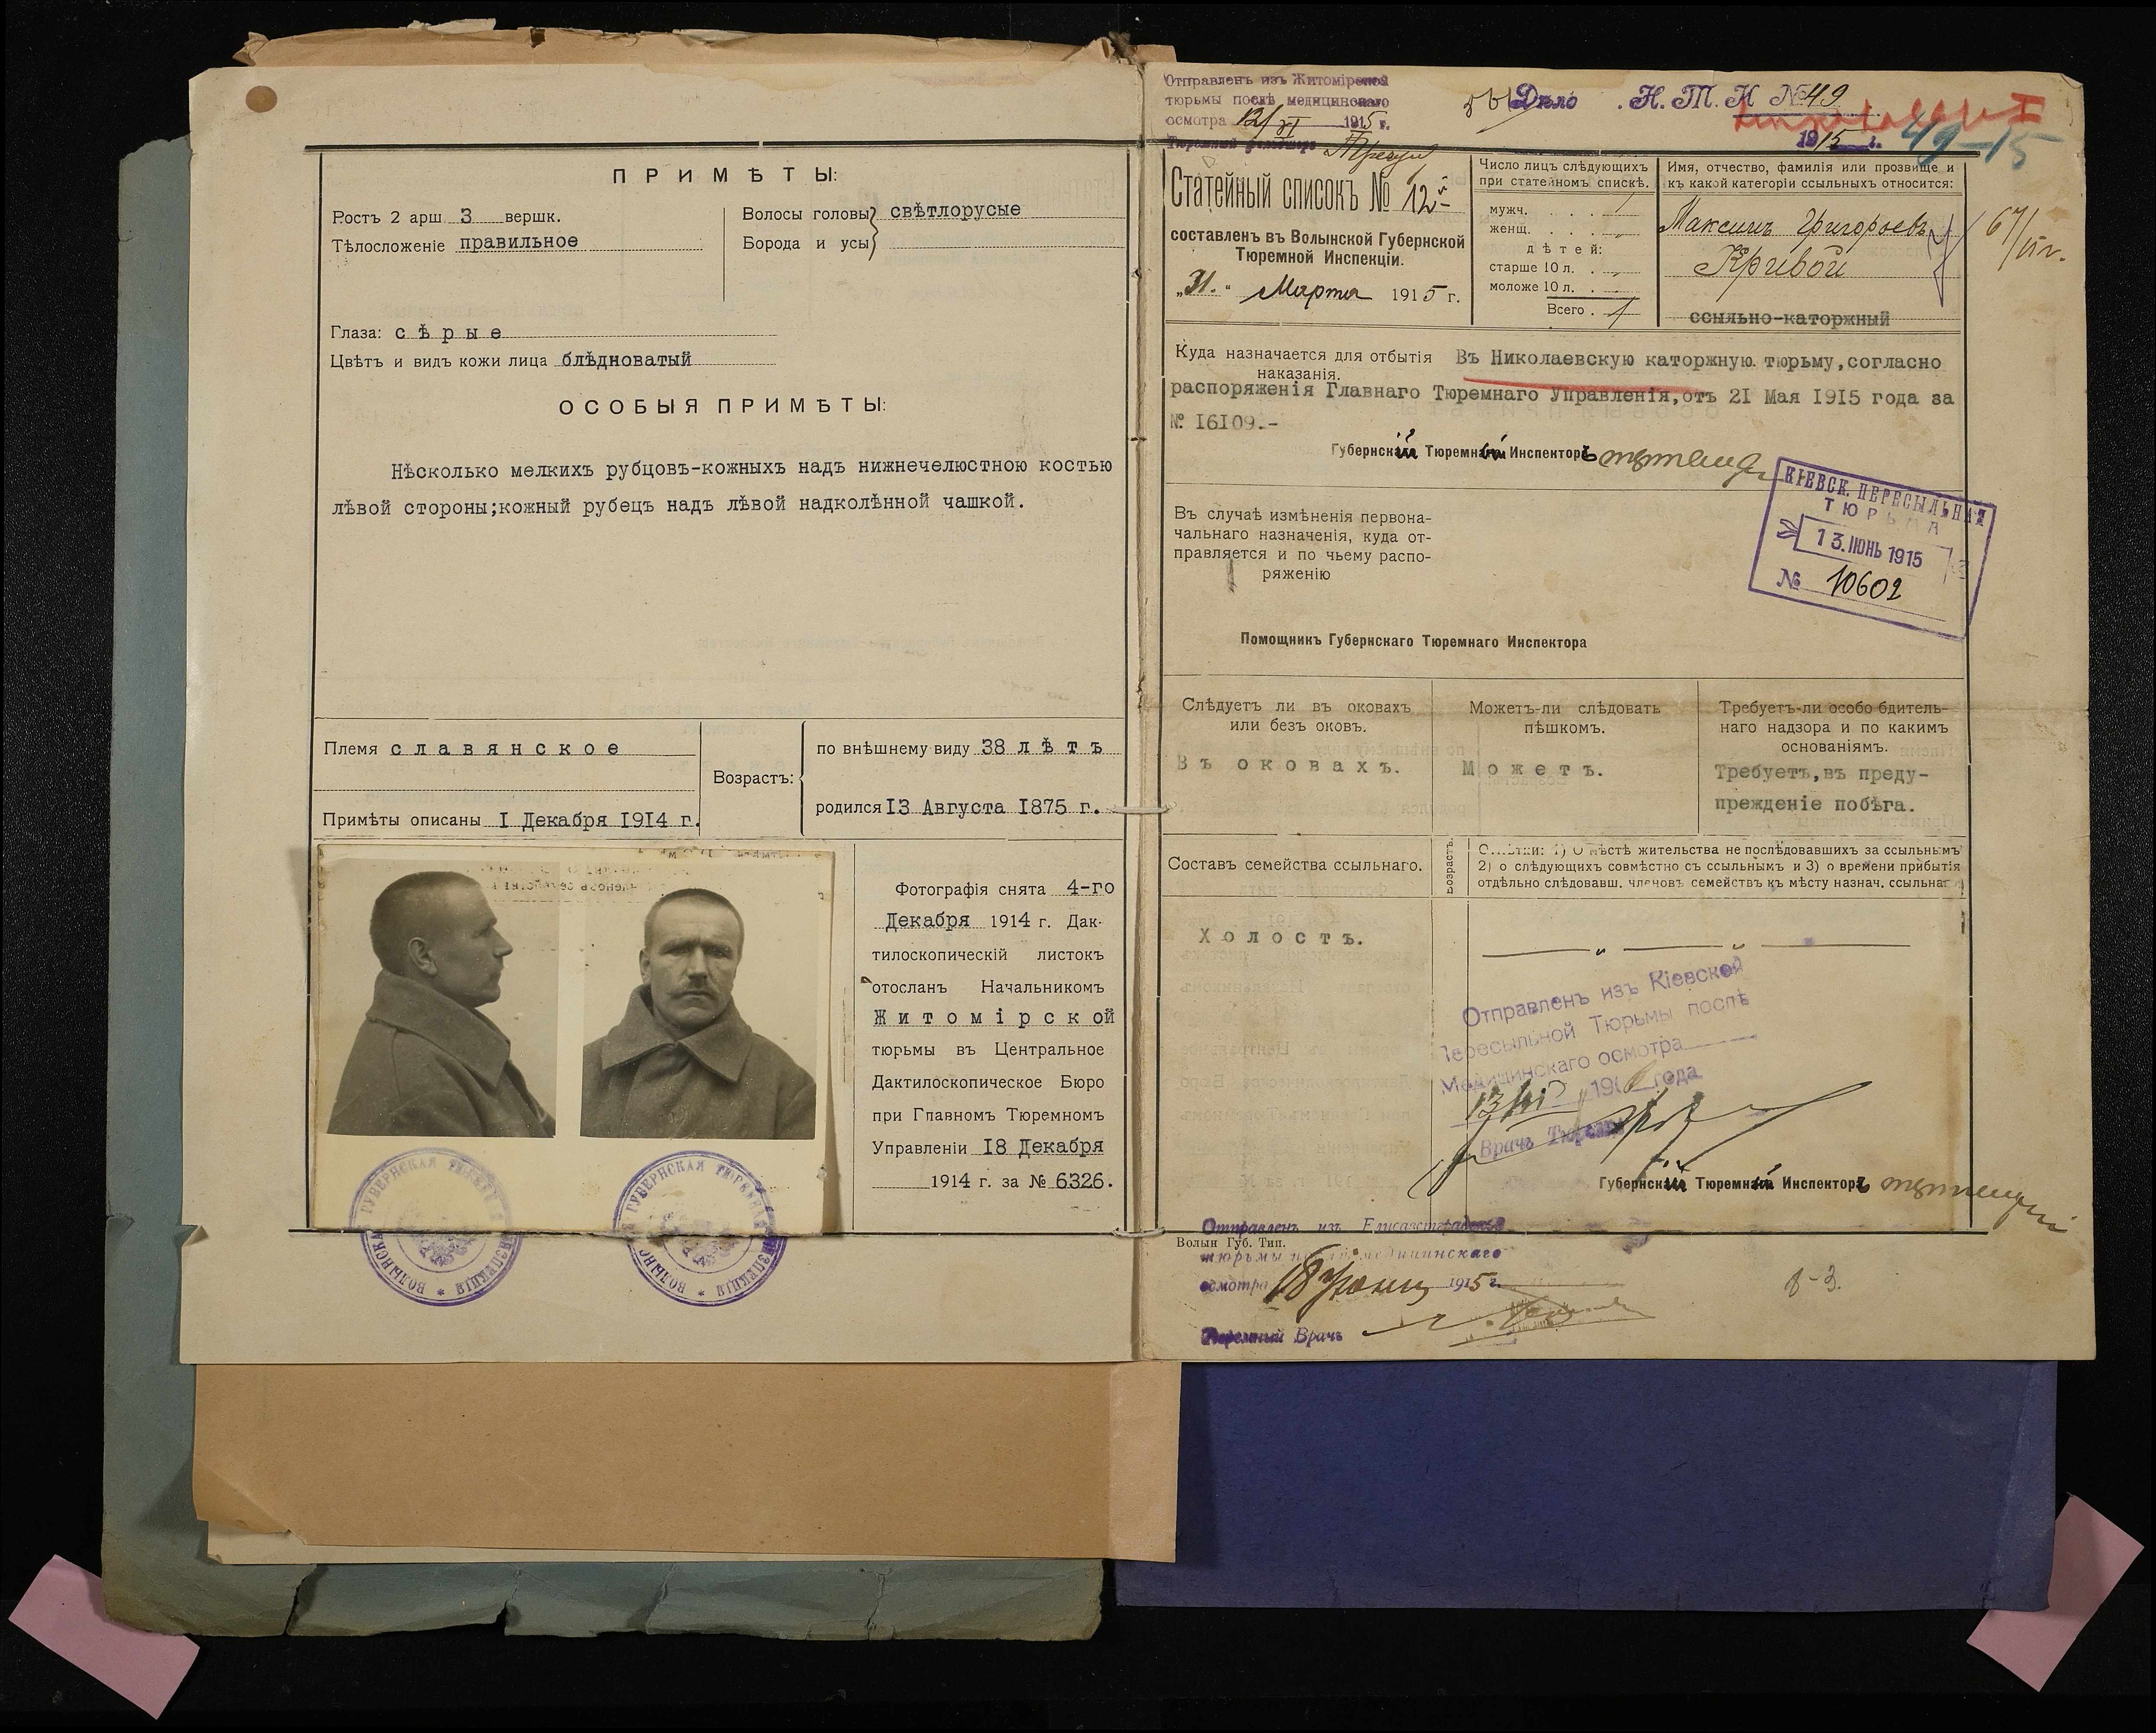 П Р И М Ѣ Т Ы:
Ростъ 2 арш. 3 вершк.
Тѣлосложеніе правильное
Волосы головы} свѣтлорусые
Борода и усы}
Глаза: с ѣ р ы е
Цвѣтъ и видъ кожи лица блѣдноватый
О С О Б Ы Я П Р И М Ѣ Т Ы:
Нѣсколько мелкихъ рубцовъ-кожныхъ надъ нижнечелюстною костью
лѣвой стороны;кожный рубецъ надъ лѣвой надколѣнной чашкой.
Племя с л а в я н с к о е
Примѣты описаны I Декабря 1914 г.
Возрастъ:
по внѣшнему виду 38 л ѣ т ъ
родился I3 Августа I875 г.
Фотографія снята 4-го
Декабря 1914 г. Дак-
тилоскопическій листокъ
отосланъ Начальникомъ
Ж и т о м і р с к о й
тюрьмы въ Центральное
Дактилоскопическое Бюро
при Главномъ Тюремномъ
Управленіи I8 Декабря
1914 г. за № 6326.
ВОЛЫНСКАЯ ГУБЕРНСКАЯ ТЮРЕМНАЯ ИНСПЕКЦІЯ *
ВОЛЫНСКАЯ ГУБЕРНСКАЯ ТЮРЕМНАЯ ИНСПЕКЦІЯ *
Отправленъ изъ Житомірской
тюрьмы послѣ медицинскаго
осмотра 12/VI 1915 г.
Тюремный фельдшеръ
Дѣло Н. Т. И №49
1915 г.
49-15
Статейный списокъ № 12
составленъ въ Волынской Губернской
Тюремной Инспекціи.
„31.“ Марта 1915 г.
Число лицъ слѣдующихъ
при статейномъ спискѣ.
мужч. . . . . 1
женщ. . . . . „
д ѣ т е й:
старше 10 л. . „
моложе 10 л. . „
Всего . 1
Имя, отчество, фамилія или прозвище и
къ какой категоріи ссыльныхъ относится:
Максимъ Григорьевъ
Кривой
ссыльно-каторжный
67/
Куда назначается для отбытія
наказанія.
Въ Николаевскую каторжную тюрьму,согласно
распоряженія Главнаго Тюремнаго Управленія,отъ 2I Мая I9I5 года за
№ I6I09.-
Губернскій Тюремный Инспекторъ
КІЕВСК. ПЕРЕСЫЛЬНАЯ
Т Ю Р Ь М А
13. ІЮНЬ 1915
№ 10602
Въ случаѣ измѣненія первона-
чальнаго назначенія, куда от-
правляется и по чьему распо-
ряженію
Помощникъ Губернскаго Тюремнаго Инспектора
Слѣдуетъ ли въ оковахъ
или безъ оковъ.
В ъ о к о в а х ъ.
Можетъ-ли слѣдовать
пѣшкомъ.
М о ж е т ъ.
Требуетъ-ли особо бдитель-
наго надзора и по какимъ
основаніямъ.
Требуетъ,въ преду-
прежденіе побѣга.
Составъ семейства ссыльнаго.
Возрастъ.
Отмѣтки: 1) О мѣстѣ жительства не послѣдовавшихъ за ссыльнымъ
2) о слѣдующихъ совмѣстно съ ссыльнымъ и 3) о времени прибытія
отдѣльно слѣдовавш. членовъ семействъ къ мѣсту назнач. ссыльнаго
Х о л о с т ъ.
Отправленъ изъ Кіевской
Пересыльной Тюрьмы послѣ
Медицинскаго осмотра
13/VI 191 года
Врачъ Тюрьмы
Губернскій Тюремный Инспекторъ
Отправленъ изъ Елисаветградской
Волын Губ. Тип.
тюрьмы послѣ медицинскаго
осмотра 18 Іюня 1915 г.
Тюремный Врачъ
8-3.